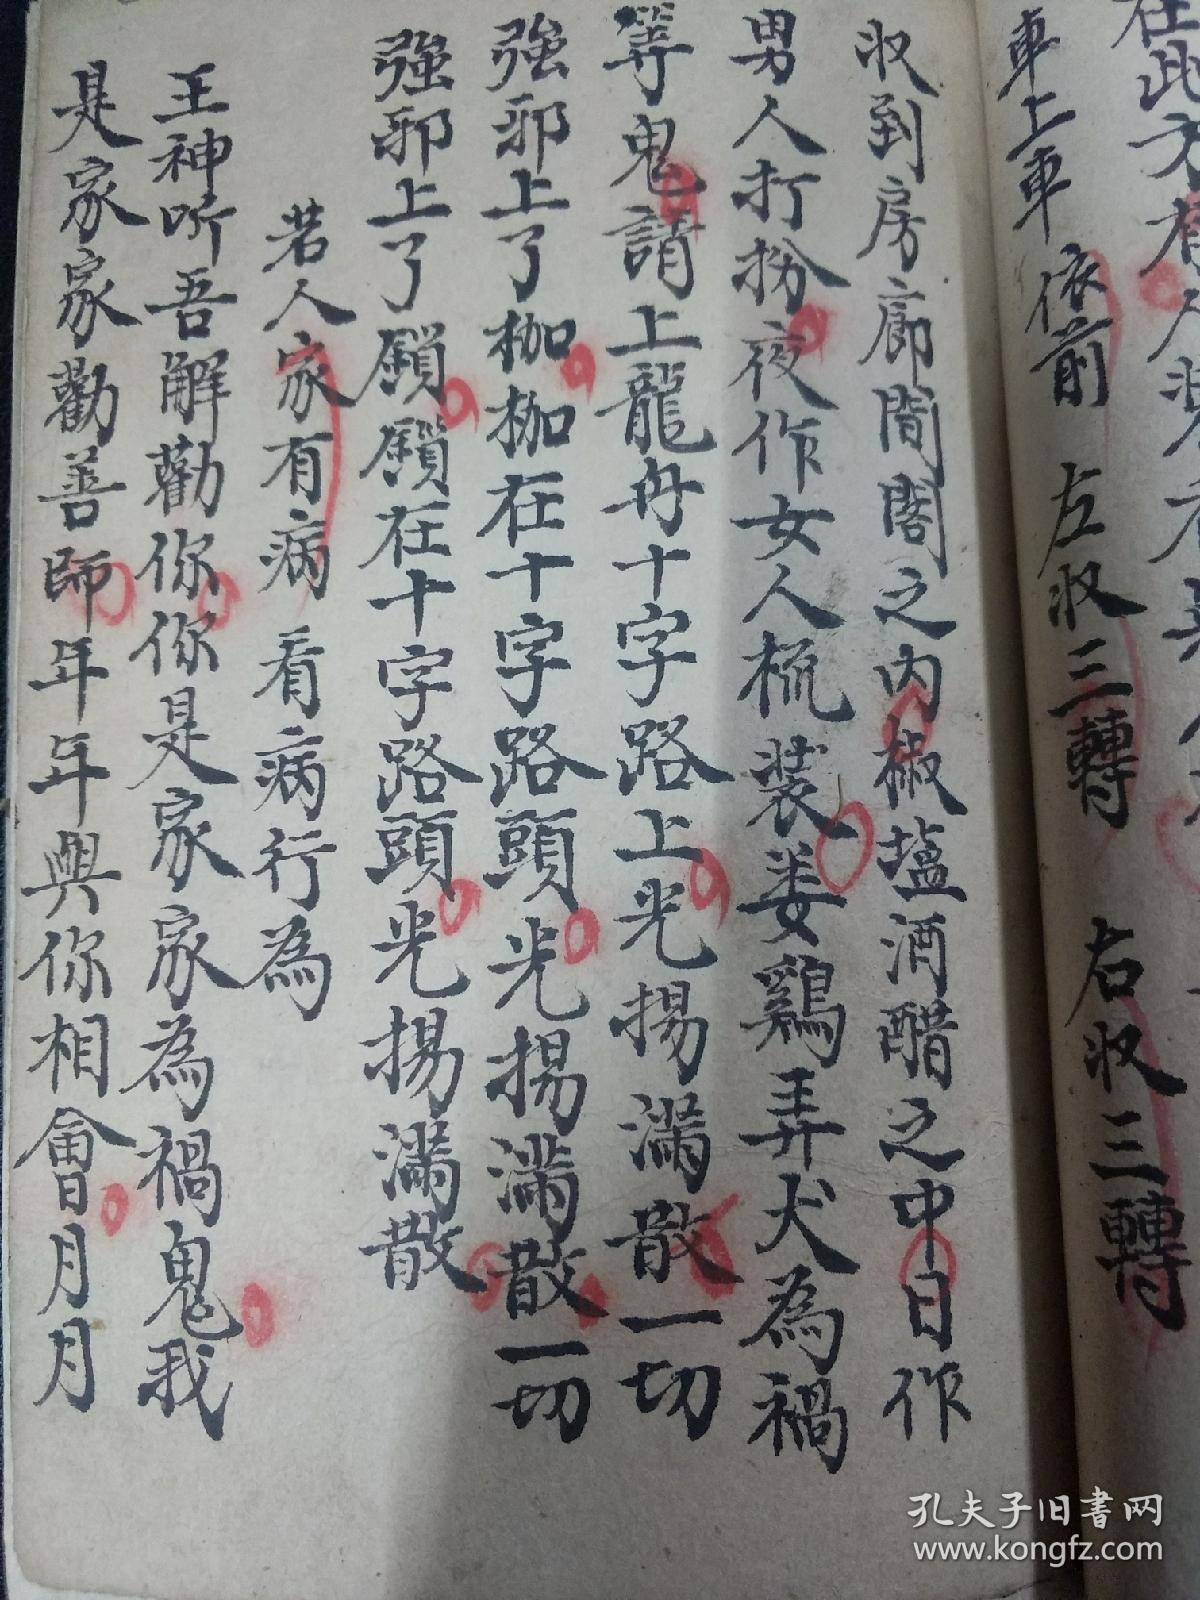 在此方有人
車上車 依前 左收三轉 右收三轉
收到房廊閣之內椒塩酒醋之中日作
男人打扮夜作女人梳装娄鷄弄犬為禍
等鬼請上龍舟十字路上光揚滿散一切
強邪上了枷枷在十字路頭光揚滿散一切
強邪上了鎖鎖在十字路頭光揚滿散
若人家有病 看病行為
王神听吾解勸你你是家家為禍鬼我
是家家勸善師年年與你相會月月
孔夫子旧书网
www.kongfz.com